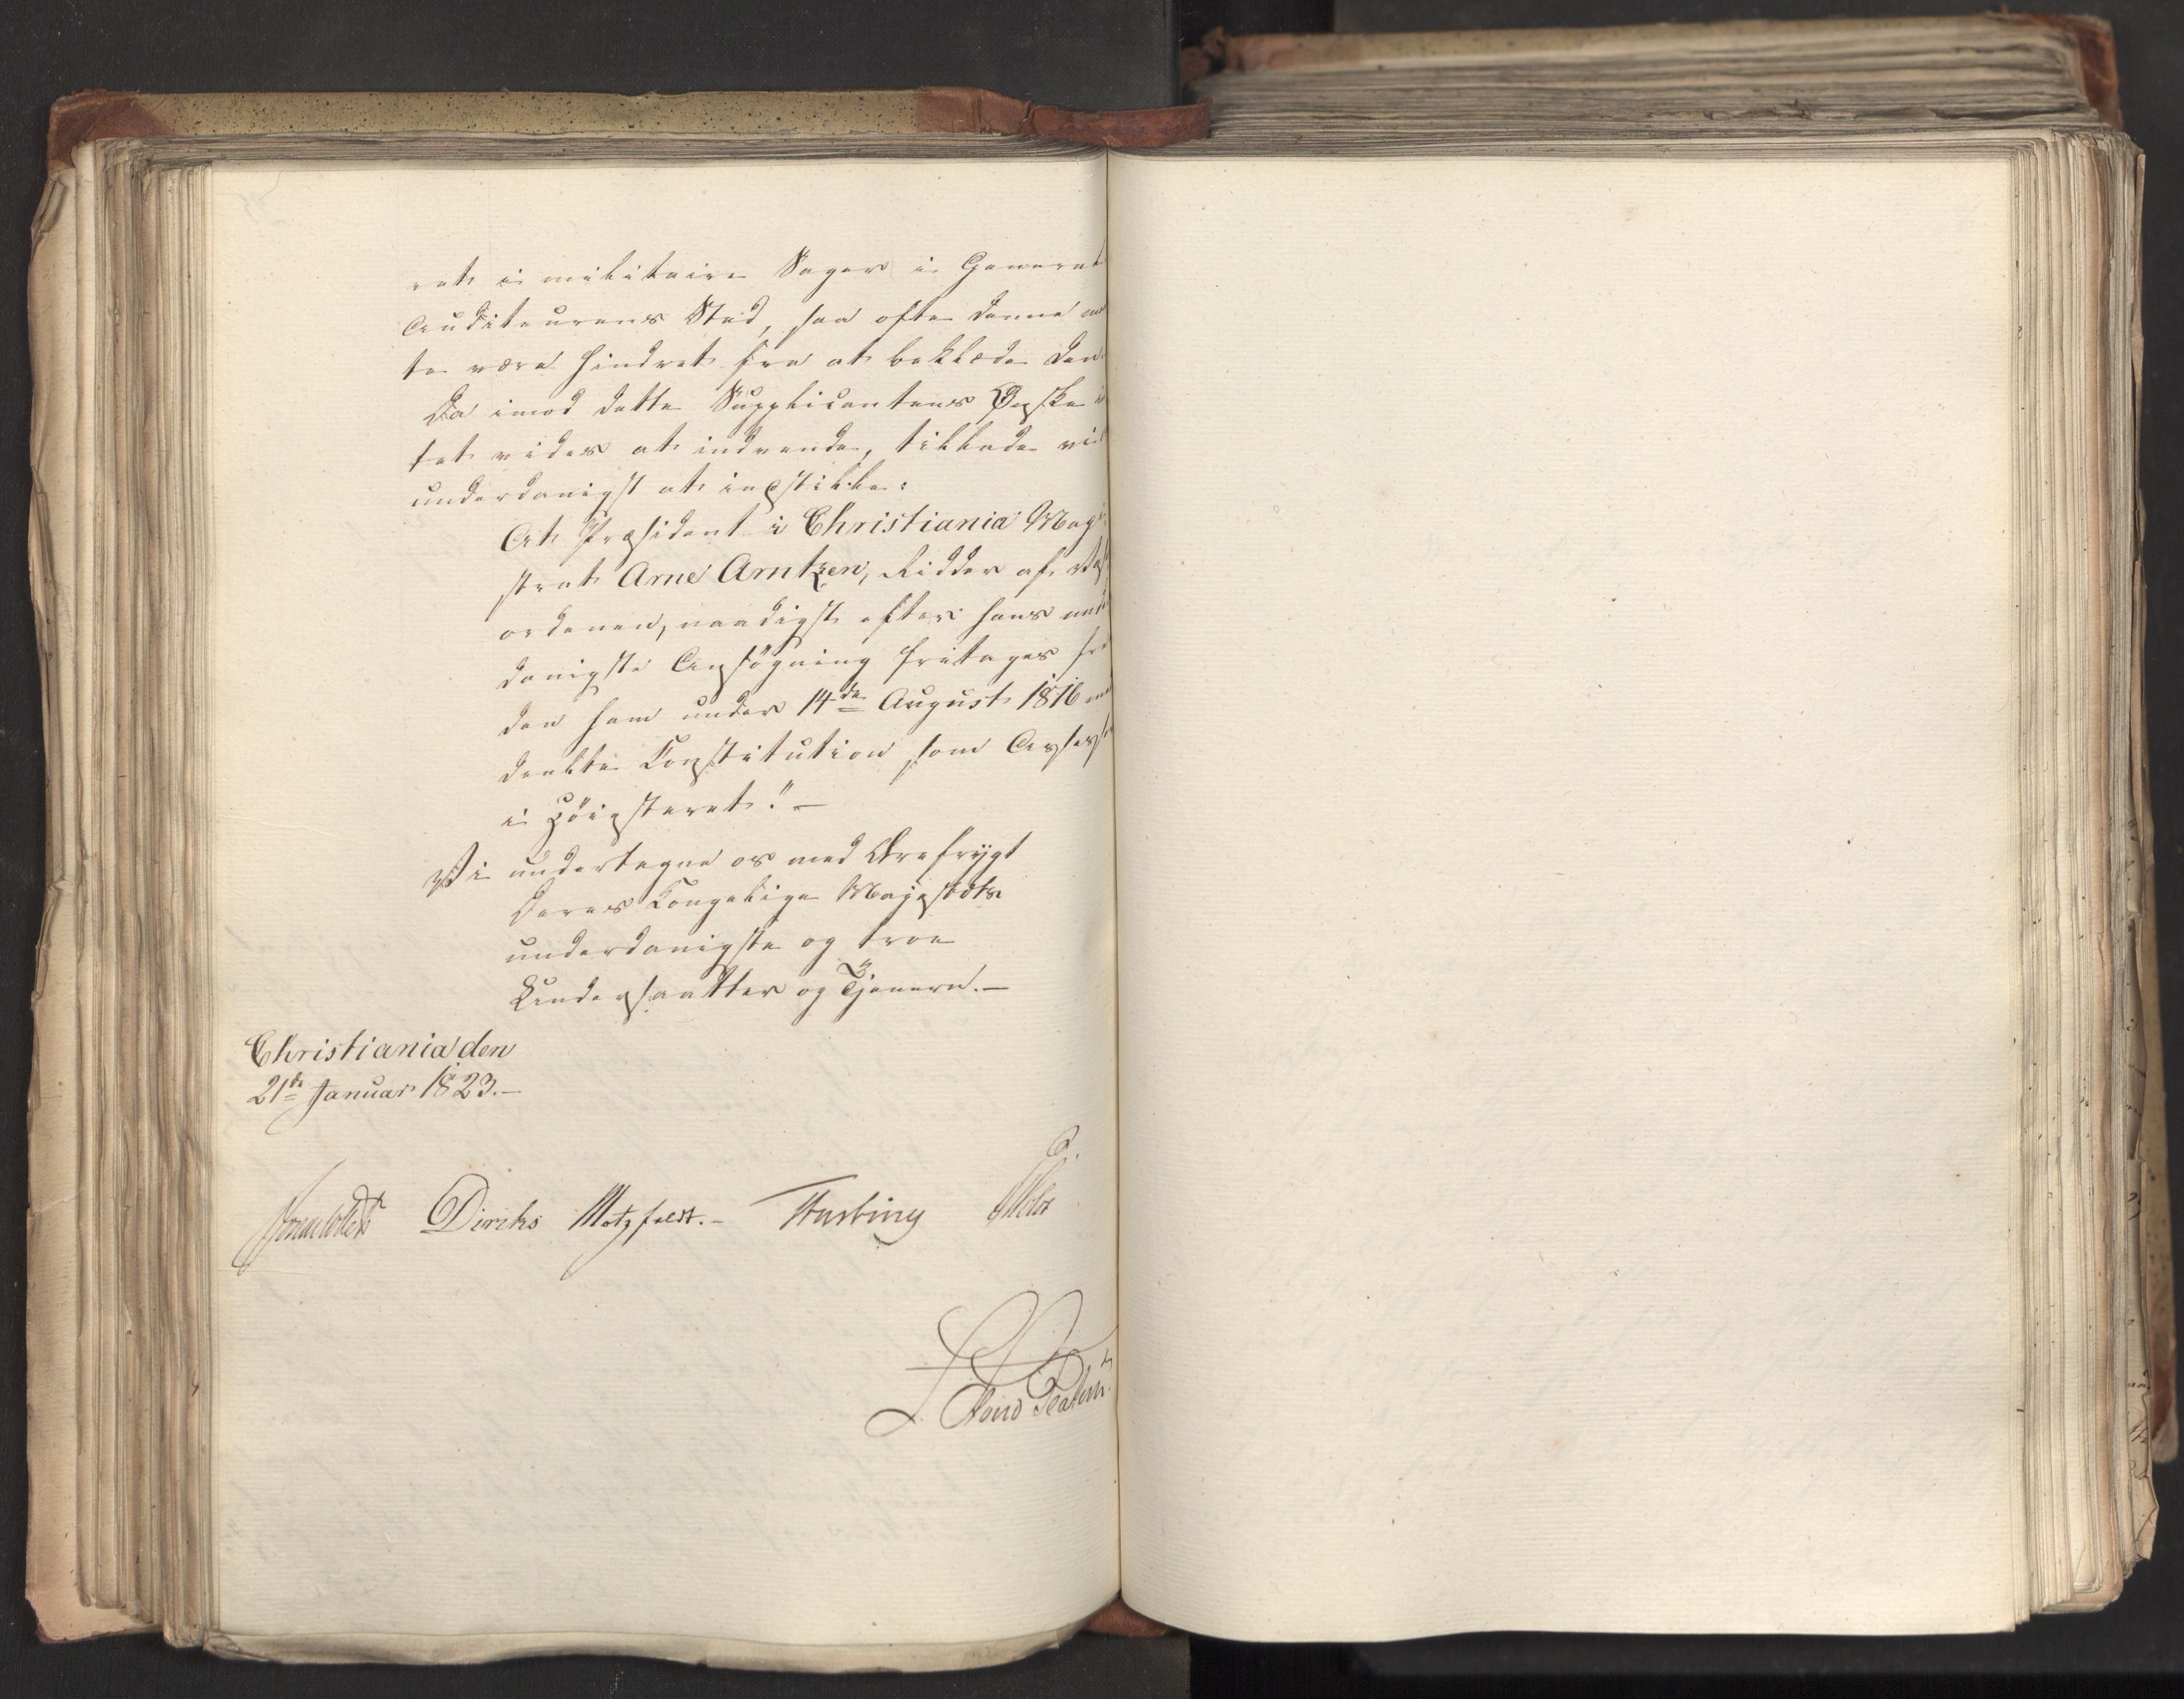 ret i militaire Sager i General
Auditeurens Sted, saa ofte denne
te være hindret fra at beklæde den.
Da imod dette Supplicantens Ønske in
tet vides at indvende, tillade vi
underdanigst at indstille:
At Præsident i Christiania Magi
strat Arne Arntzen, Ridder af Vasa
ordenen, naadigst efter hans under
danigste Ansøgning fritages fra
den ham under 14de August 1816 med
deelte Constitution som Assessor
i Høiesteret." —
Vi undertegne os med Ærefrygt
Deres Kongelige Majestæts
underdanigste og troe
Undersaatter og Tjenere. —
Christiania den
21de Januar 1823. —
Diriks Motzfeldt. —